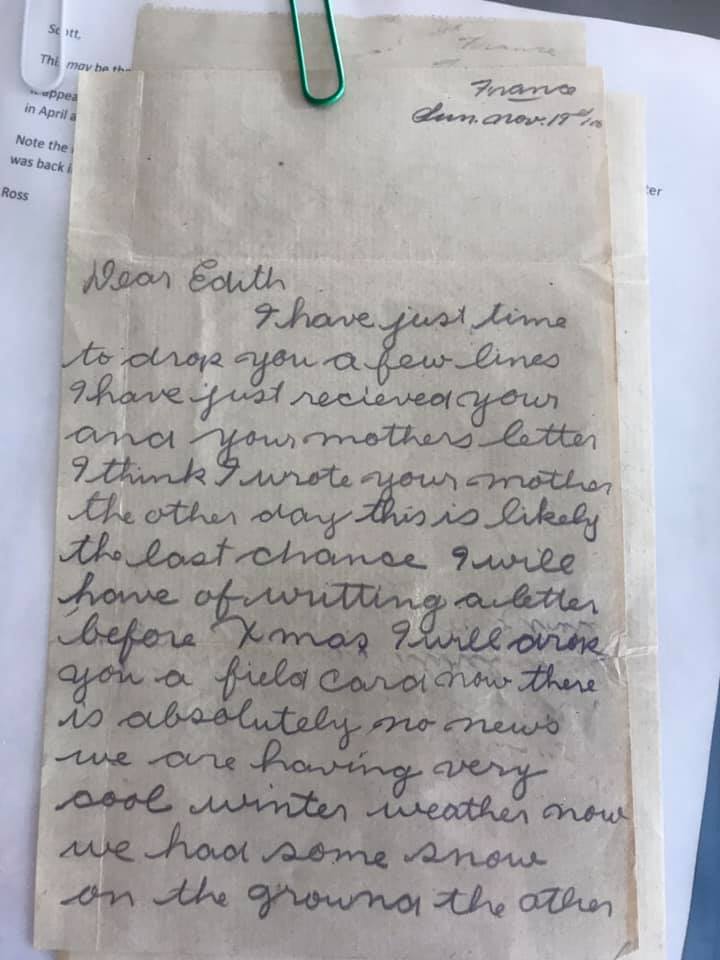 Scott,
This may be the
appea
in April a
Note the
was back i
Ross
ter
France
France
Sun. Nov. 19th/16
Dear Edith
I have just time
to drop you a few lines
I have just recieved your
and your mothers letter
I think I wrote your mother
the other day this is likely
the last chance I will
have of writting a letter
before Xmas I will drop
you a field card now there
is absolutely no news
we are having very
cool winter weather now
we had some snow
on the ground the other